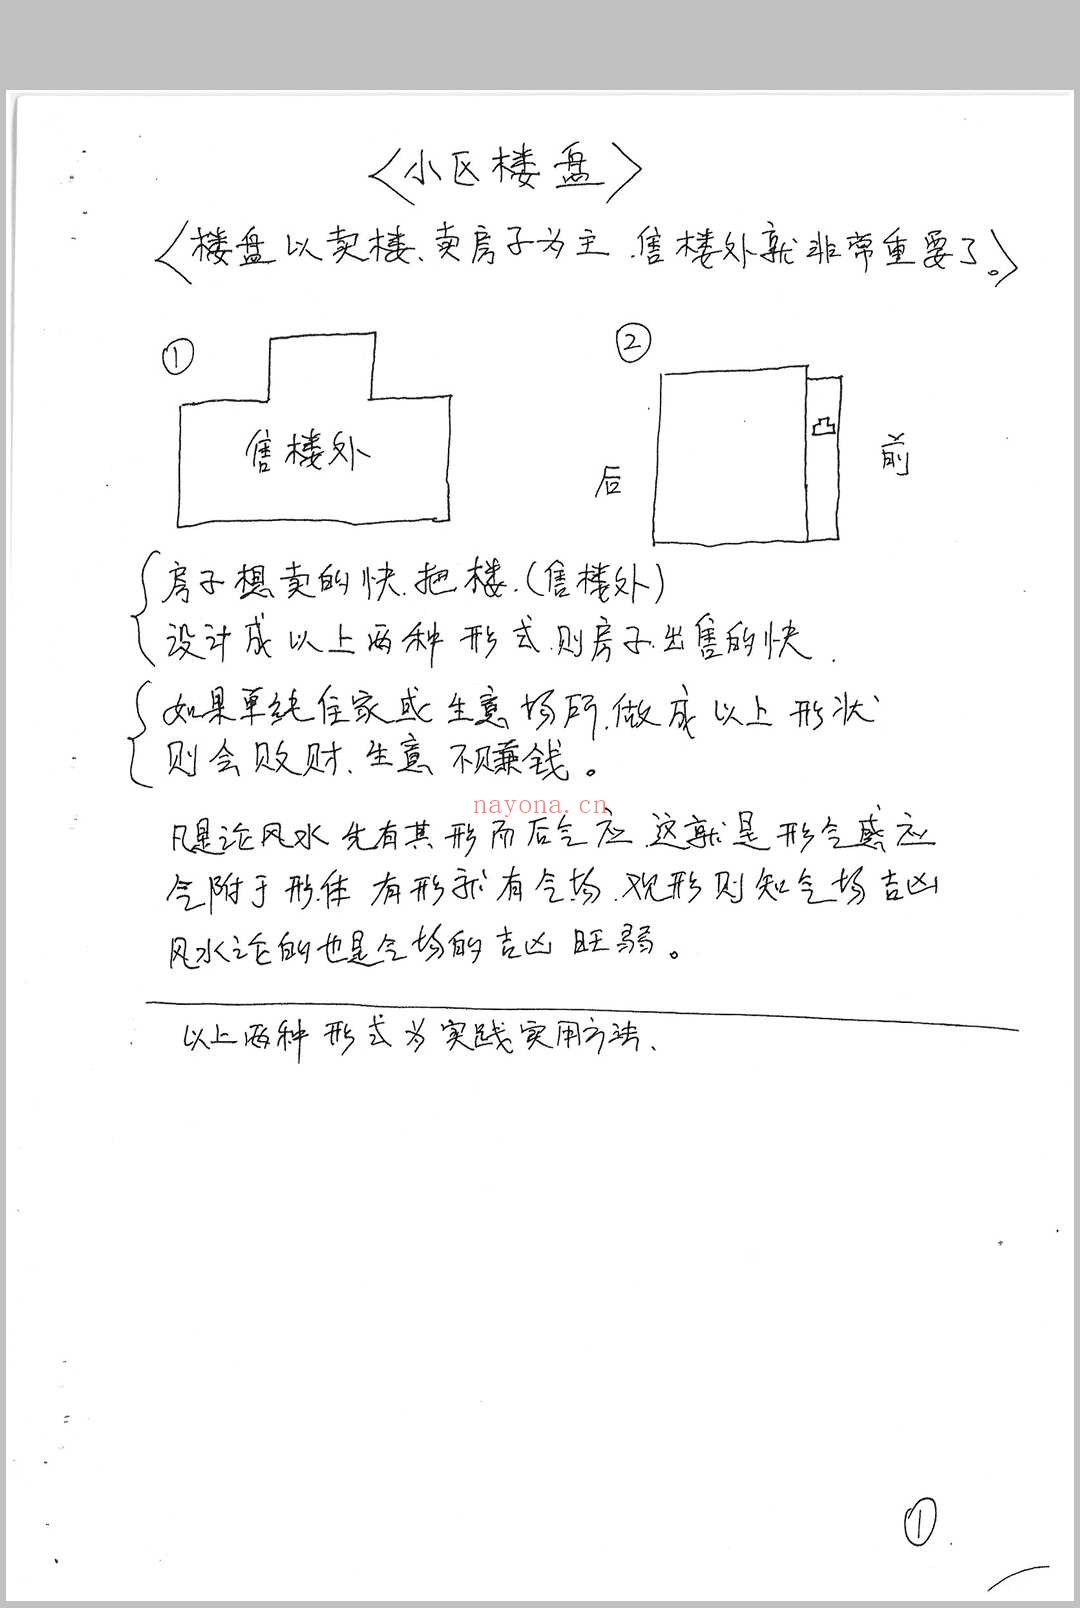 〈小区楼盘〉
〈楼盘以卖楼、卖房子为主.售楼处就非常重要了。〉
① ②
售楼处
后 凸 前
房子想卖的快.把楼.(售楼处)
设计成以上两种形式.则房子出售的快.
如果单纯住家或生意场所.做成以上形状
则会败财、生意不赚钱。
nayona.cn
凡是论风水先有其形而后气应.这就是形气感应
气附于形体 有形就有气场.观形则知气场吉凶
风水论的也是气场的吉凶旺弱。
以上两种形式为实践实用方法、
①